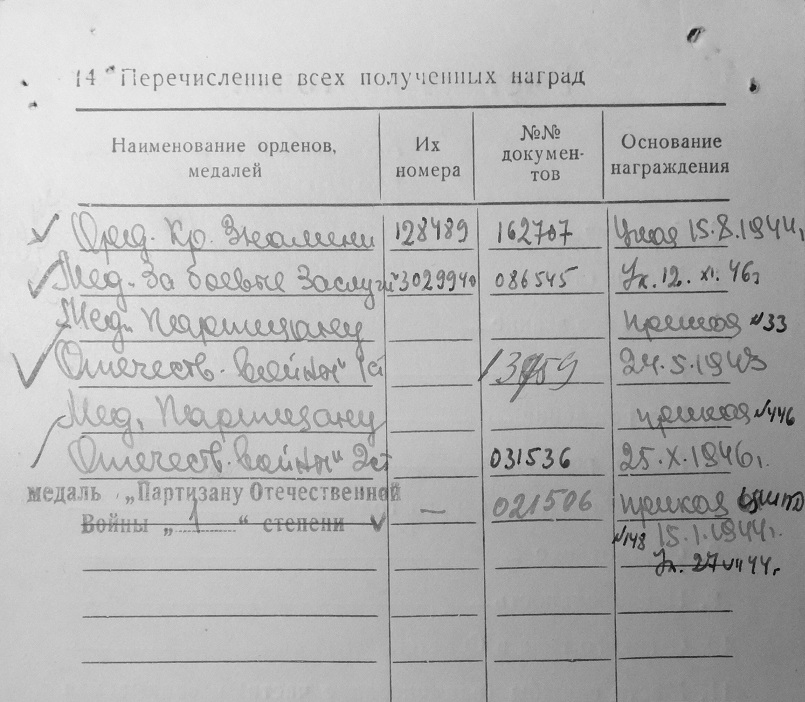 14 Перечисление всех полученных наград
Наименование орденов, медалей
Их номера
№№ документов
Основание награждения
Орд. Кр. Знамени 128489 162707 Указ 15.8.1944г.
Мед. За боевые Заслуги 3029940 086545 Ук. 12. XI. 46г
Мед. Партизану приказ №33
Отечеств. Войны" 1ст 24.5.1943
Мед. Партизану приказ №446
Отечеств. Войны" 2ст 031536 25.X.1946г.
медаль „Партизану Отечественной
Войны „ 1 “ степени — 021506 приказ
№148 15.1.1944г.
Ук. 27 44г